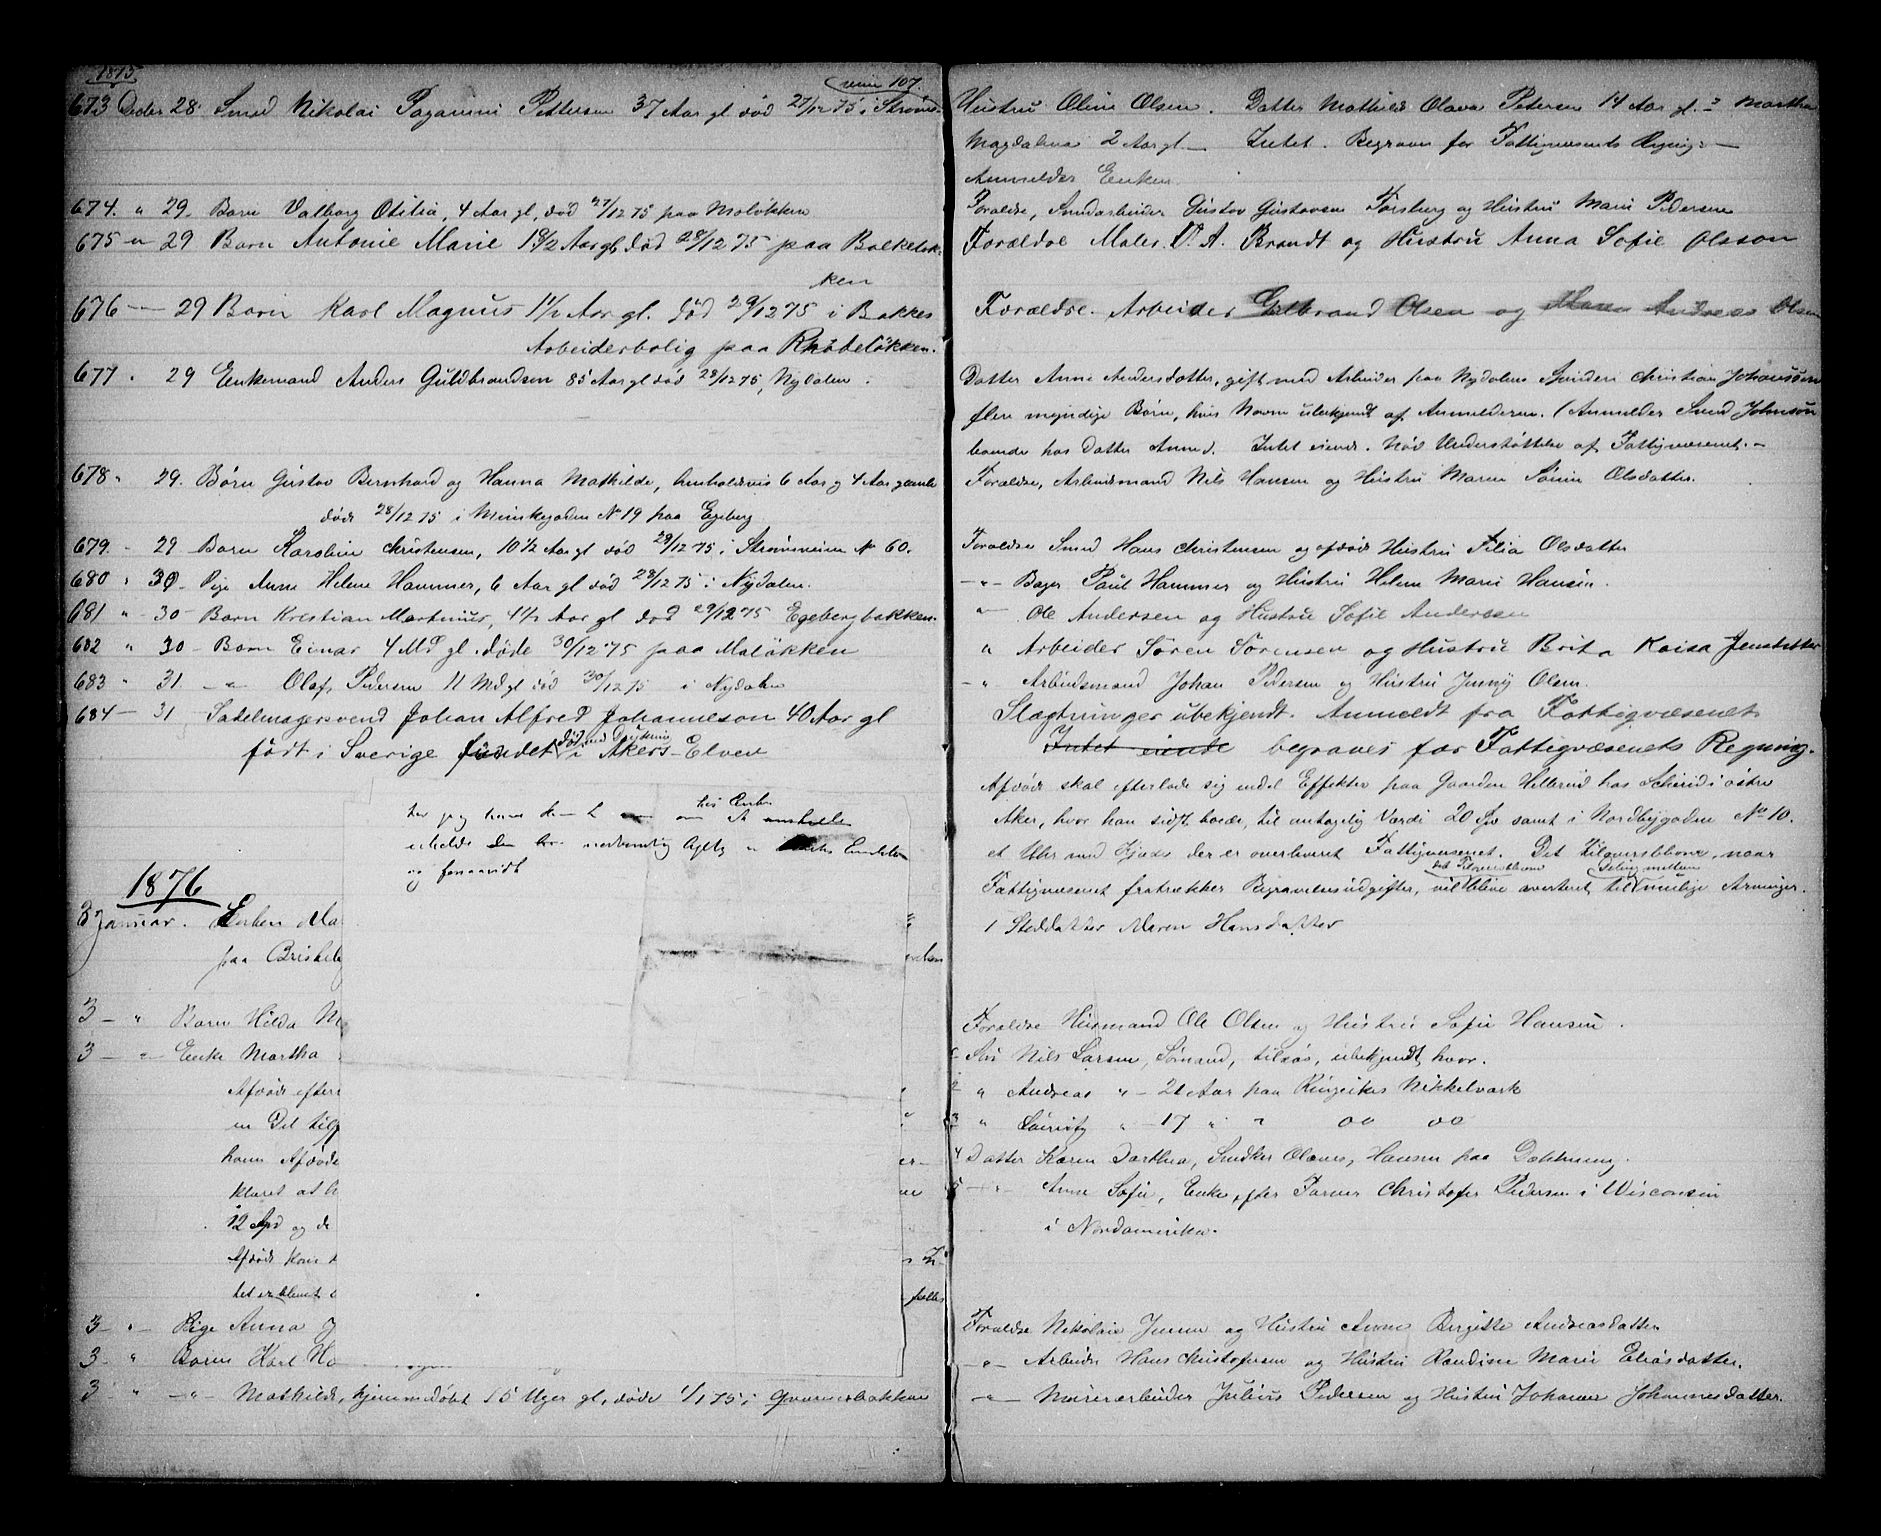 1875
107.
673 Decbr 28. Smed Nikolai Paganini Pettersen 37 Aar gl død 27/12 75 i
674. " 29. Barn Valborg Otilia, 4 Aar gl, død 27/12 75 paa Moløkken
675 " 29 Barn Antonie Marie 1 9/12 Aar gl død 28/12 75 paa Balkeløk-
ken
676 — 29 Barn Karl Magnus 1½ Aar gl. død 29/12 75 i Bakkes
Arbeiderbolig paa Rhodeløkken.
677 . 29 Enkemand Anders Guldbrandsen 85 Aar gl død 28/12 75, Nydalen.
678 " 29. Børn Gustav Bernhard og Hanna Mathilde, henholdsvis 6 Aar og 4 Aar gamle
døde 28/12 75 i Minskegaden No 19 paa Egeberg
679. - 29 Barn Karoline Christensen, 10½ Aar gl død 28/12 75 i Strømsveien No 60.
680 " 30. Pige Anne Helene Hammer, 6 Aar gl død 28/12 75 i Nydalen.
681 " 30- Barn Kristian Martinius, 4½ Aar gl død 29/12 75 Egebergbakken.
682 " 30- Barn Einar 4 Md gl. døde 30/12 75 paa Moløkken
683 " 31. —"— Olaf Pedersen 11 Md gl død 30/12 75 i Nydalen
684 — 31 Sadelmagersvend Johan Alfred Johanneson 40 Aar gl
født i Sverige fundet død i Akers-Elven
har jeg
og forsaavidt
1876
3 Januar. Enken Ma
paa Briskeby
3 — " Barn Hilda M
3 — " — Enke Martha
Afdøde efter
en Det tilg
ham Afdøde
klaret at h
12 Spd og de
Afdøde kom
3 — " — Pige Anna J
3 - " Barn Karl Ha
3 " —"— Mathilde, hjemmedøbt 15 Uger gl, døde 1/1 75 i Qværnerbakken
Hustru Oline Olsen. Datter Mathilde Olava Petersen 14 Aar gl. Martha
Magdalena 2 Aar gl. — Intet. Begraves for Fattigvæsenets Regning. —
Anmelder Enken.
Forældre, Smedarbeider Gustav Gustavsen Forsberg og Hustru Marie Pedersen
Forældre Maler. A. Brandt og Hustru Anna Sofie Olsson
Forældre. Arbeider Gulbrand Olsen og Andreas Olsen
Datter Anne Andersdatter, gift med Arbeider paa Nydalens Spinderi Christian Johansen
flere myndige Børn, hvis Navne ubekjendt af Anmelderen. (Anmelder Smed Johnson
boende hos Datter Anne). Intet eiende. Nød Understøttelse af Fattigvæsenet. —
Forældre, Arbeidsmand Nils Hansen og Hustru Maren Sørine Olsdatter.
Forældre Smed Hans Christensen og afdøde Hustru Olsdatter
—"— Bager Paul Hammer og Hustru Helene Marie Hansen.
"— Ole Andersen og Hustru Sofie Andersen
" Arbeider Søren Sørensen og Hustru Brita Kaisa Jensdatter
—"— Arbeidsmand Johan Pedersen og Hustru Jenny Olsen.
Slægtninger ubekjendt. Anmeldt fra Fattigvæsenet
Intet eiende begraves for Fattigvæsenets Regning.
Afdøde skal efterlade sig endel Effekter paa Gaarden Hellerud hos Scherud i østre
Aker, hvor han sidst boede, til antagelig Værdi 20 Spd samt i Nordbygaden No 10.
et Uhr med Kjæde der er overleveret Fattigvæsenet. Det tiloversblevne, naar
Fattigvæsenet fratrækker Begravelsesudgifter, vil blive til mulige Arvinger.
1 Steddatter Maren Hansdatter
Forældre Husmand Ole Olsen og Hustru Sofie Hansen.
Søn Nils Larsen, Sømand, tilsøs, ubekjendt hvor.
2 " Andreas " — 21 Aar paa Ringerikes Nikkelværk
3 " " — 17 " " do do
4 Datter Karen Dorthea, Snedker Hansen paa
5 —"— Anne Sofie, Enke efter Farmer Christofer Pedersen i Wisconsin
i Nordamerika.
Forældre Nikolaie Jensen og Hustru Anne Birgitte Andreasdatter
—"— Arbeider Hans Christofersen og Hustru Randine Marie Eliasdatter.
—"— Murerarbeider Julius Pedersen og Hustru Johanne Johannesdatter.